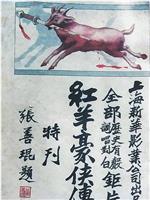 上海新華影業公司出品
全部歷史有聲
詞唱對白 鉅片
紅羊豪俠傳
特刊
張善琨題